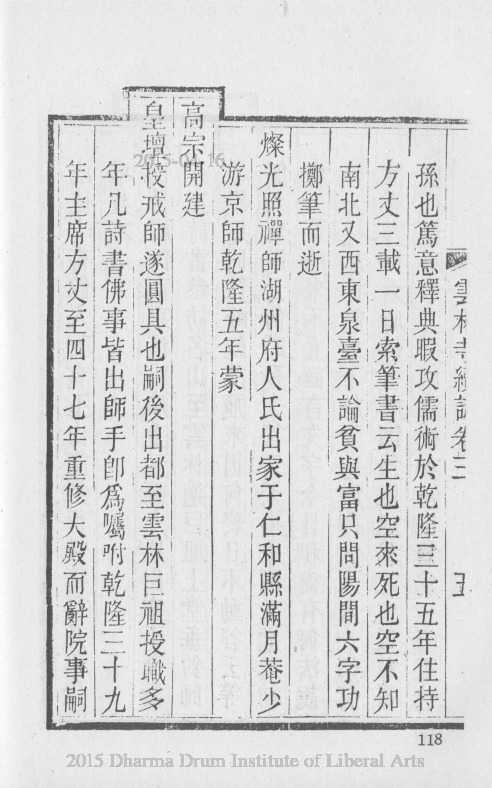 雲林寺續誌卷三 五
孫也篤意釋典暇攻儒術於乾隆三十五年住持
方丈三載一日索筆書云生也空來死也空不知
南北又西東泉臺不論貧與富只問陽間六字功
擲筆而逝
燦光照禪師湖州府人氏出家于仁和縣滿月菴少
游京師乾隆五年蒙
高宗開建
皇壇授戒師遂圓具也嗣後出都至雲林巨祖授職多
年凡詩書佛事皆出師手卽爲囑咐乾隆三十九
年主席方丈至四十七年重修大殿而辭院事嗣
118
2015 Dharma Drum Institute of Liberal Arts